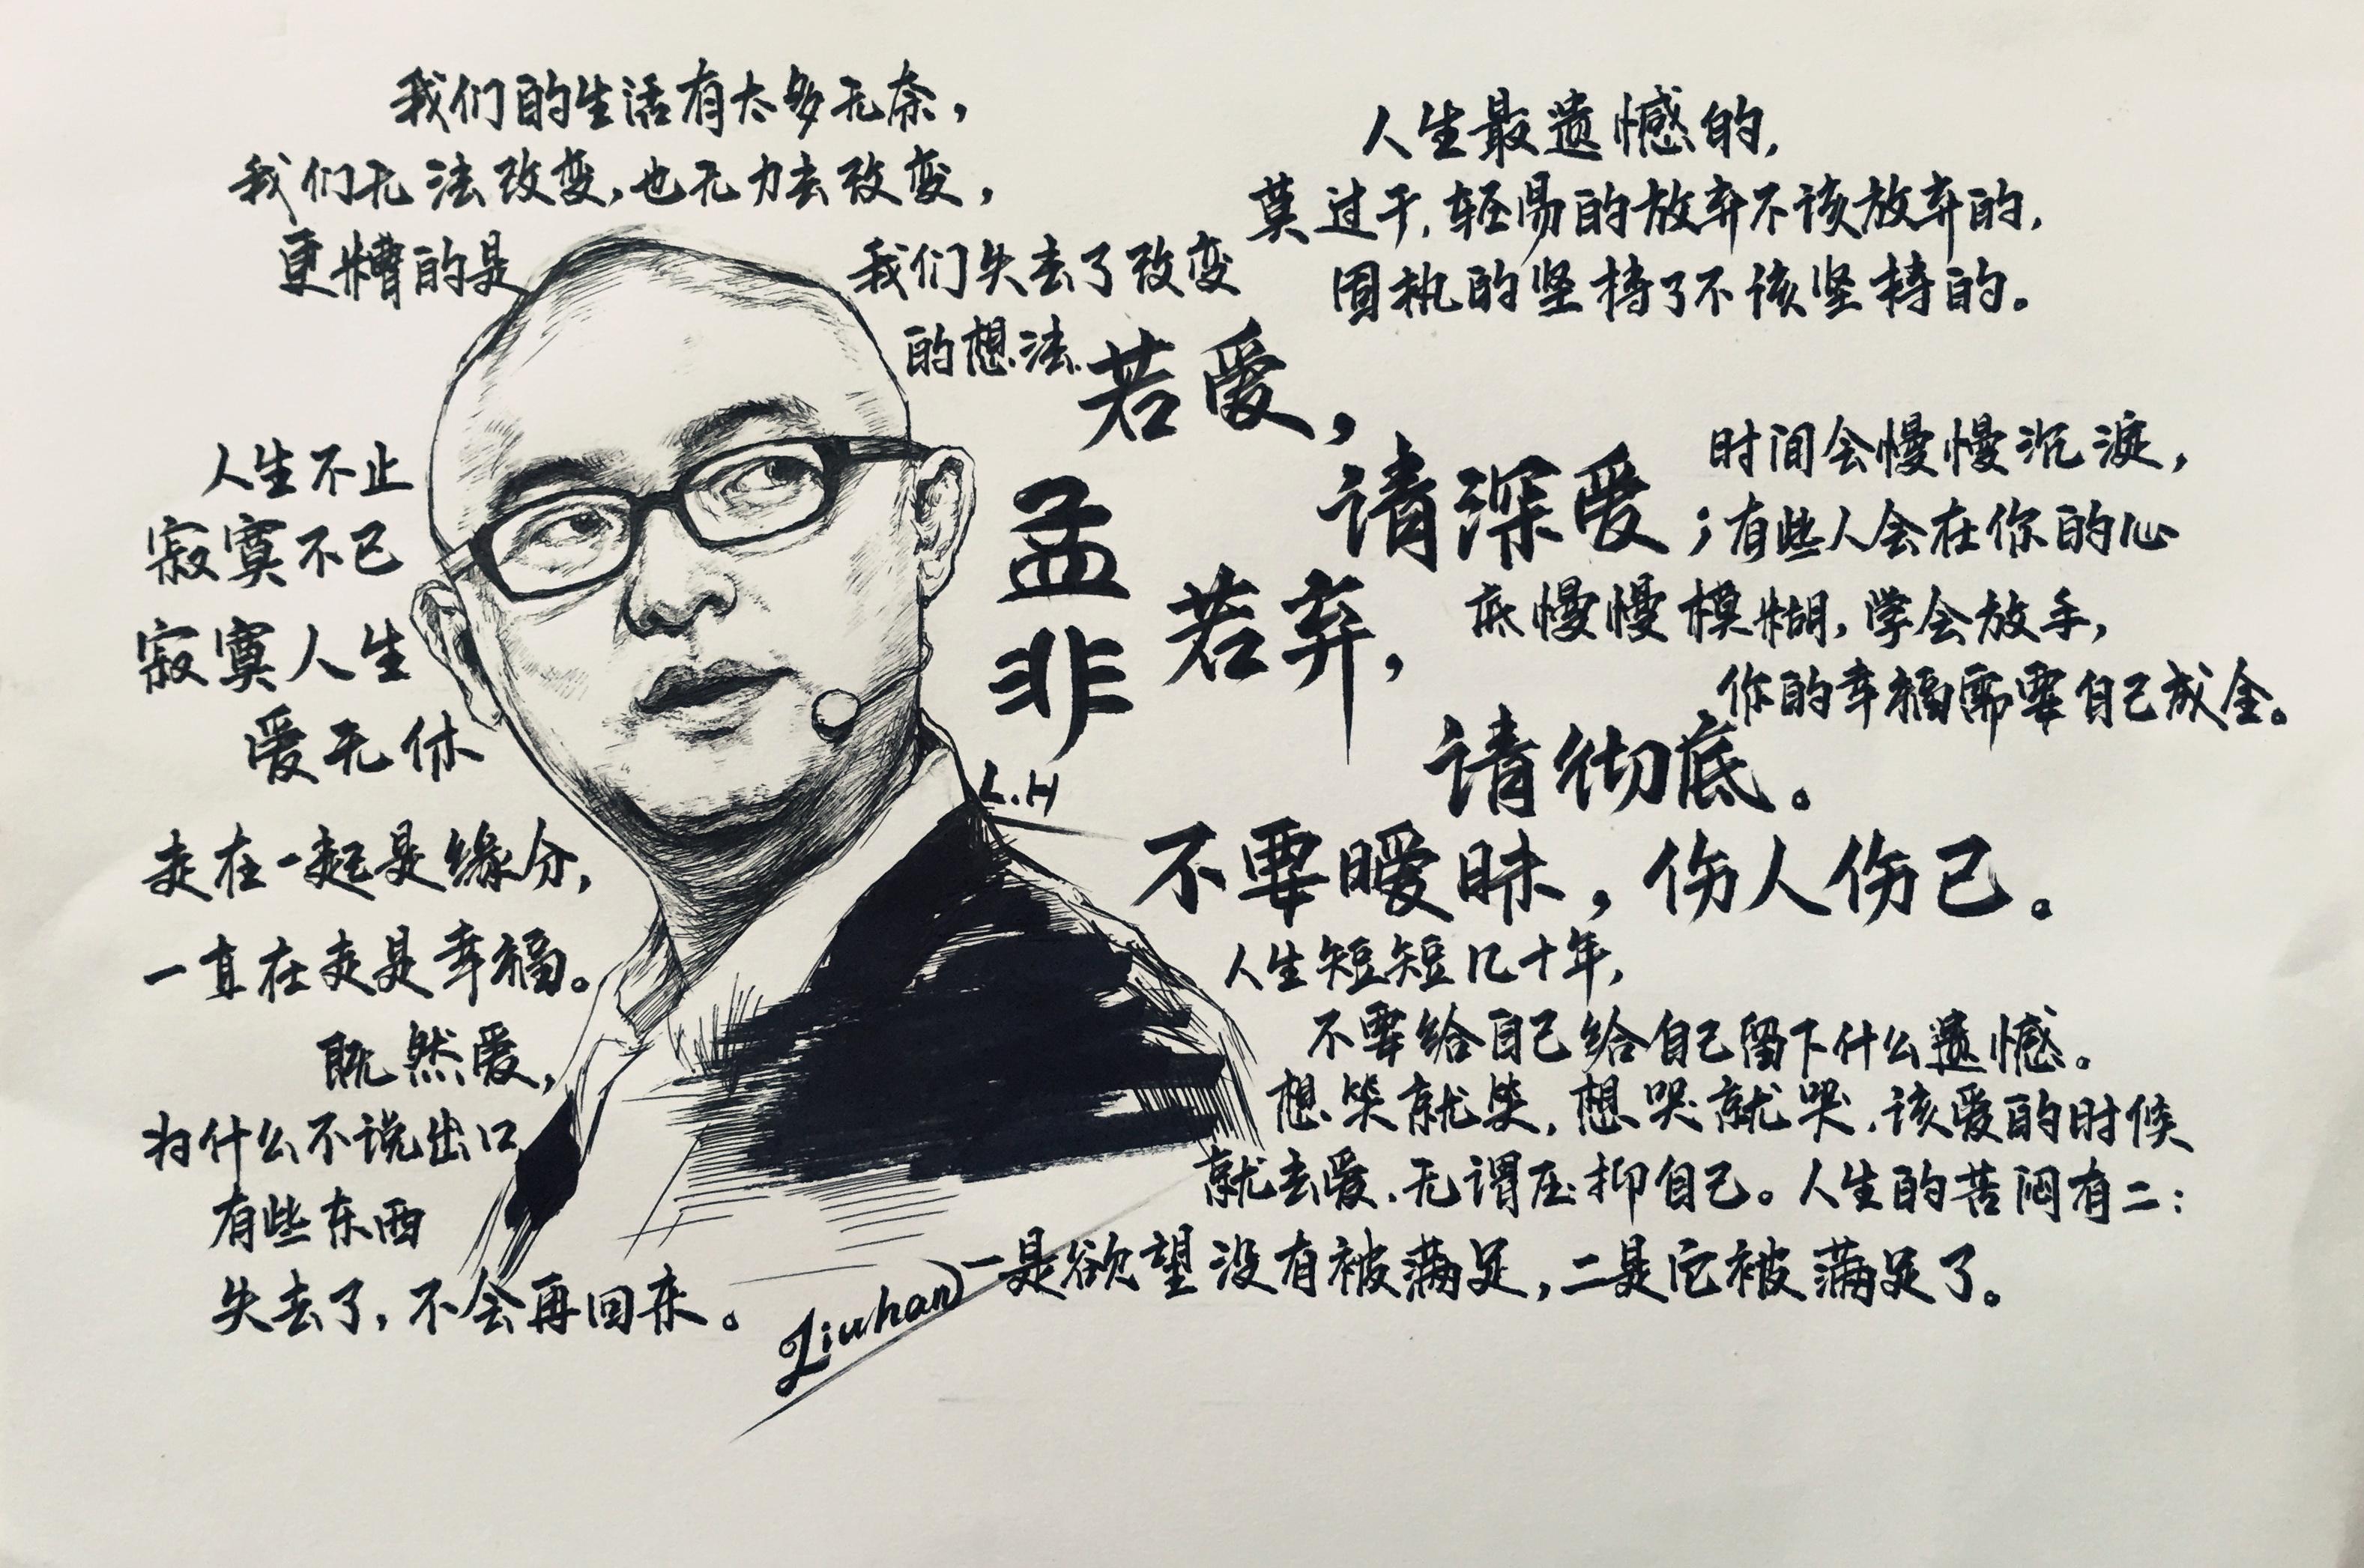 我们的生活有太多无奈，
我们无法改变，也无力去改变，
更糟的是
我们失去了改变
的想法.
人生最遗憾的，
莫过于，轻易的放弃不该放弃的，
固执的坚持了不该坚持的。
若爱，
请深爱；
若弃，
请彻底。
不要暧昧，伤人伤己。
时间会慢慢沉淀，
有些人会在你的心
底慢慢模糊，学会放手，
你的幸福需要自己成全。
孟非
L.H
人生不止
寂寞不已
寂寞人生
爱无休
走在一起是缘分，
一直在走是幸福。
既然爱，
为什么不说出口
有些东西
失去了，不会再回来。
人生短短几十年，
不要给自己给自己留下什么遗憾。
想笑就笑，想哭就哭，该爱的时候
就去爱，无谓压抑自己。人生的苦闷有二：
一是欲望没有被满足，二是它被满足了。
Liuhan